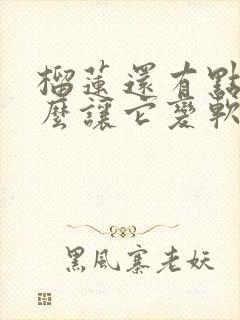 榴蓮還有點
麼讓它變軟
黑風寨老妖